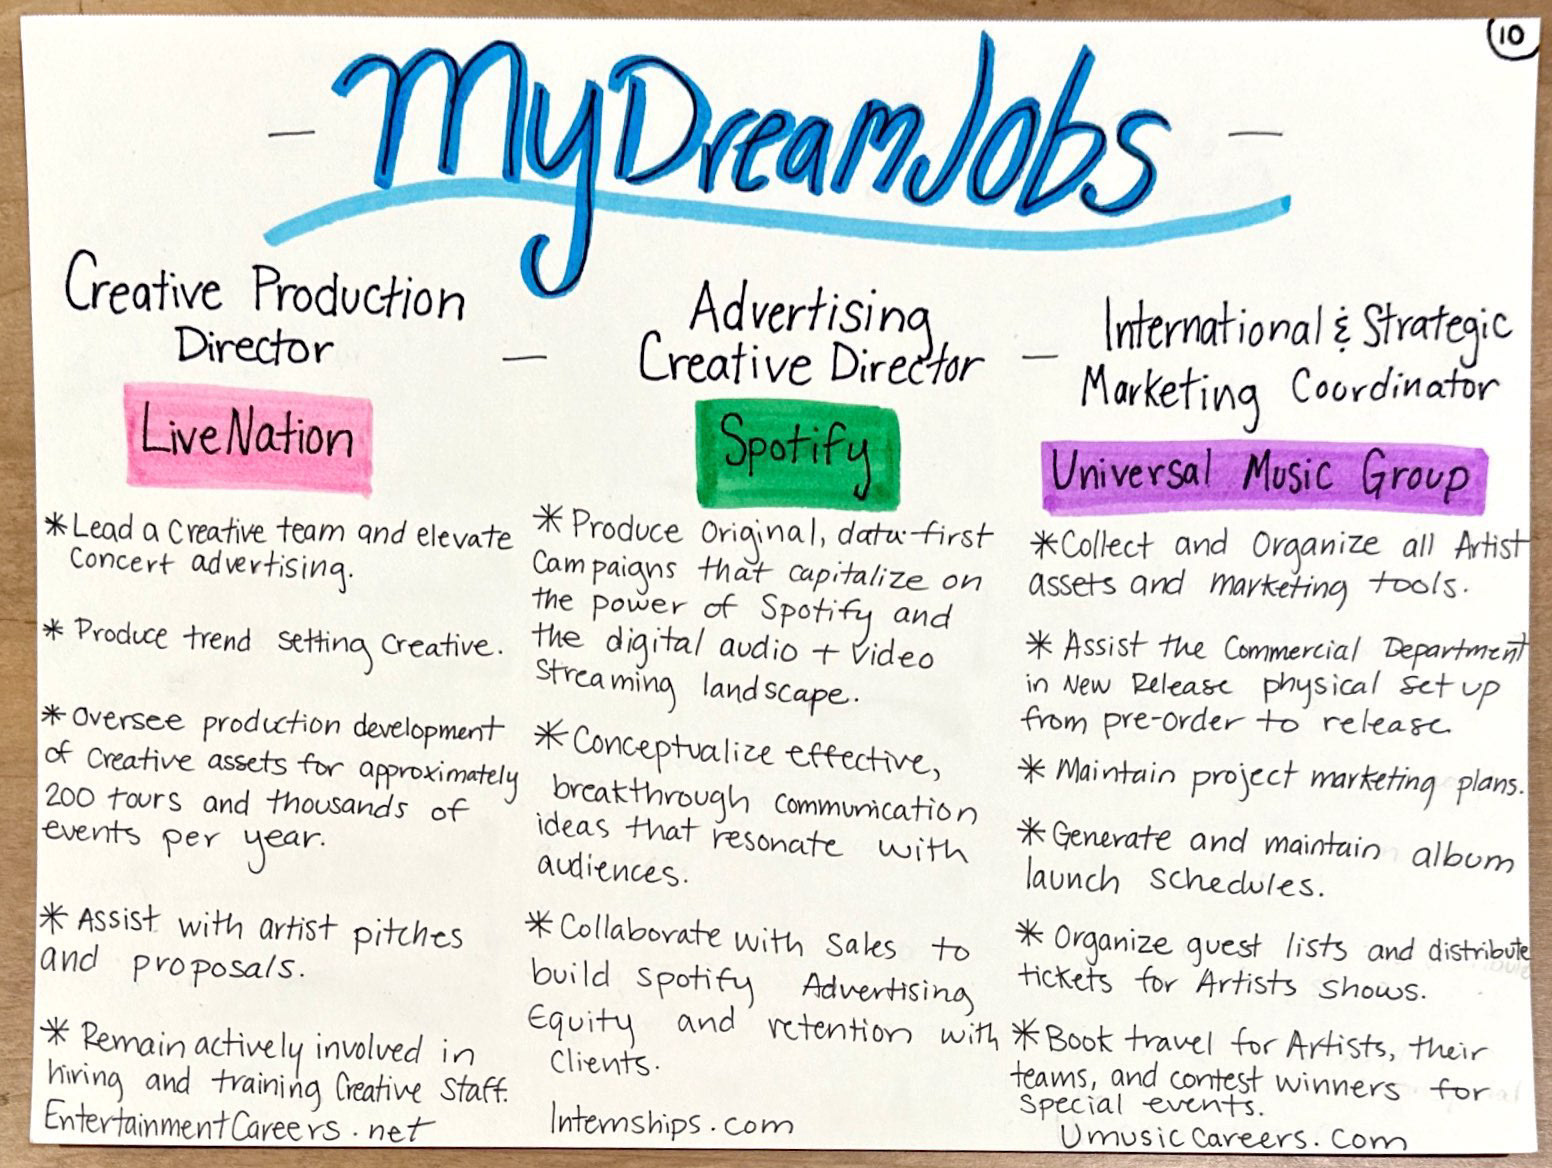 10
My Dream Jobs
Creative Production
Director
Live Nation
*Lead a Creative team and elevate
Concert advertising.
* Produce trend setting Creative.
* Oversee production development
of Creative assets for approximately
200 tours and thousands of
events per year.
* Assist with artist pitches
and proposals.
* Remain actively involved in
hiring and training Creative Staff.
EntertainmentCareers.net
Advertising
Creative Director
Spotify
* Produce Original, data-first
Campaigns that capitalize on
the power of Spotify and
the digital audio + video
Streaming landscape.
* Conceptualize effective,
breakthrough communication
ideas that resonate with
audiences.
* Collaborate with Sales to
build Spotify Advertising
Equity and retention with
Clients.
Internships.com
International & Strategic
Marketing Coordinator
Universal Music Group
*Collect and Organize all Artist
assets and marketing tools.
* Assist the Commercial Department
in New Release physical set up
from pre-order to release
* Maintain project marketing plans.
* Generate and maintain album
launch schedules.
* Organize guest lists and distribute
tickets for Artists shows.
* Book travel for Artists, their
teams, and contest winners for
special events.
UmusicCareers.com